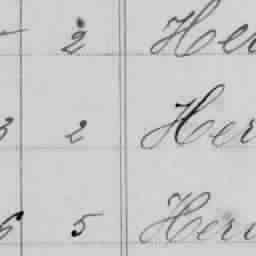 2 Her
3 2 Her
6 5 Her